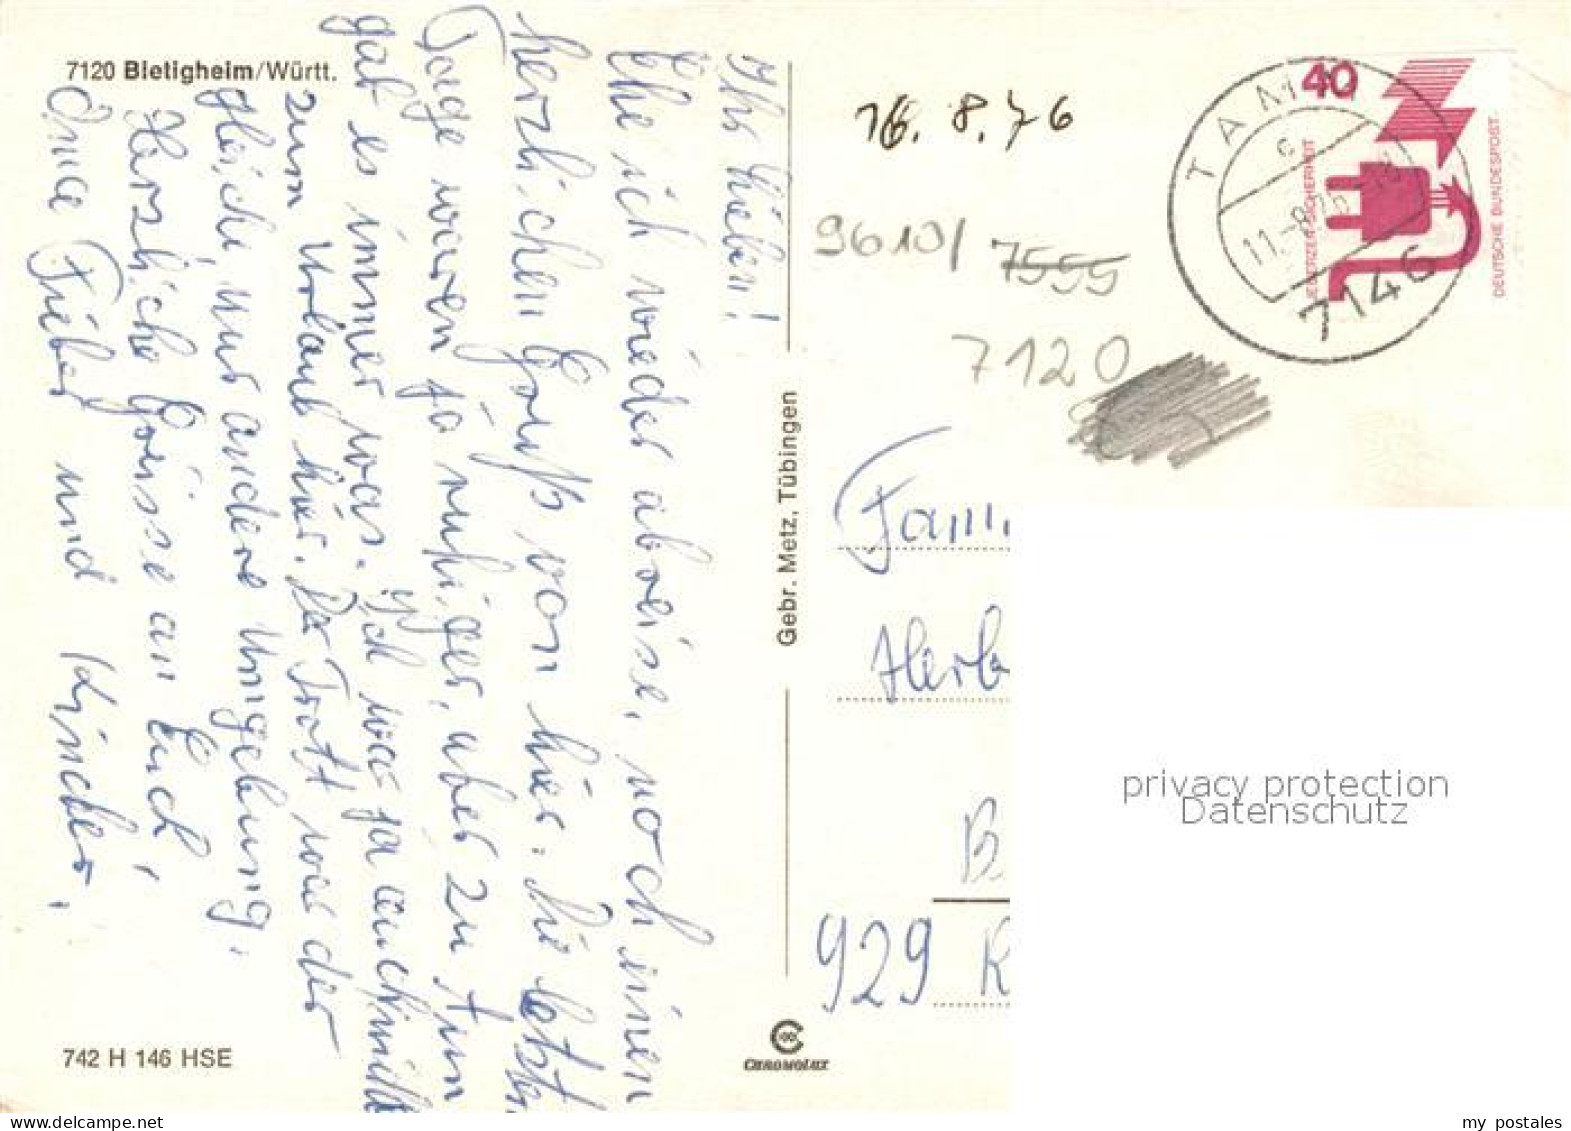 7120 Bietigheim/Württ.
Ihr Lieben!
Ehe ich wieder abreise, noch einen
herzlichen Gruß von hier. Die letzten
Tage waren ja ruhiger, aber zu tun
gab es immer was. Ich war ja auch nicht
zum Urlaub hier. Der Trott war der
gleiche, nur andere Umgebung.
Herzliche Grüsse an Euch,
Oma und Kinder.
742 H 146 HSE
Gebr. Metz, Tübingen
CHROMOLUX
16.8.76
9610/ 7555
7120
TAMM
c
11.-8.76
7146
40
JEDERZEIT SICHERHEIT
DEUTSCHE BUNDESPOST
Fami
Herb
B
929 R
privacy protection
Datenschutz
my postales